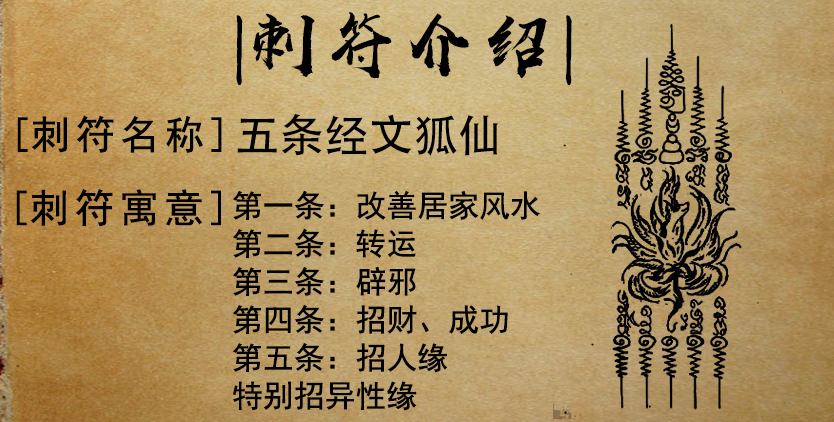 刺符介绍
[刺符名称] 五条经文狐仙
[刺符寓意] 第一条：改善居家风水
第二条：转运
第三条：辟邪
第四条：招财、成功
第五条：招人缘
特别招异性缘